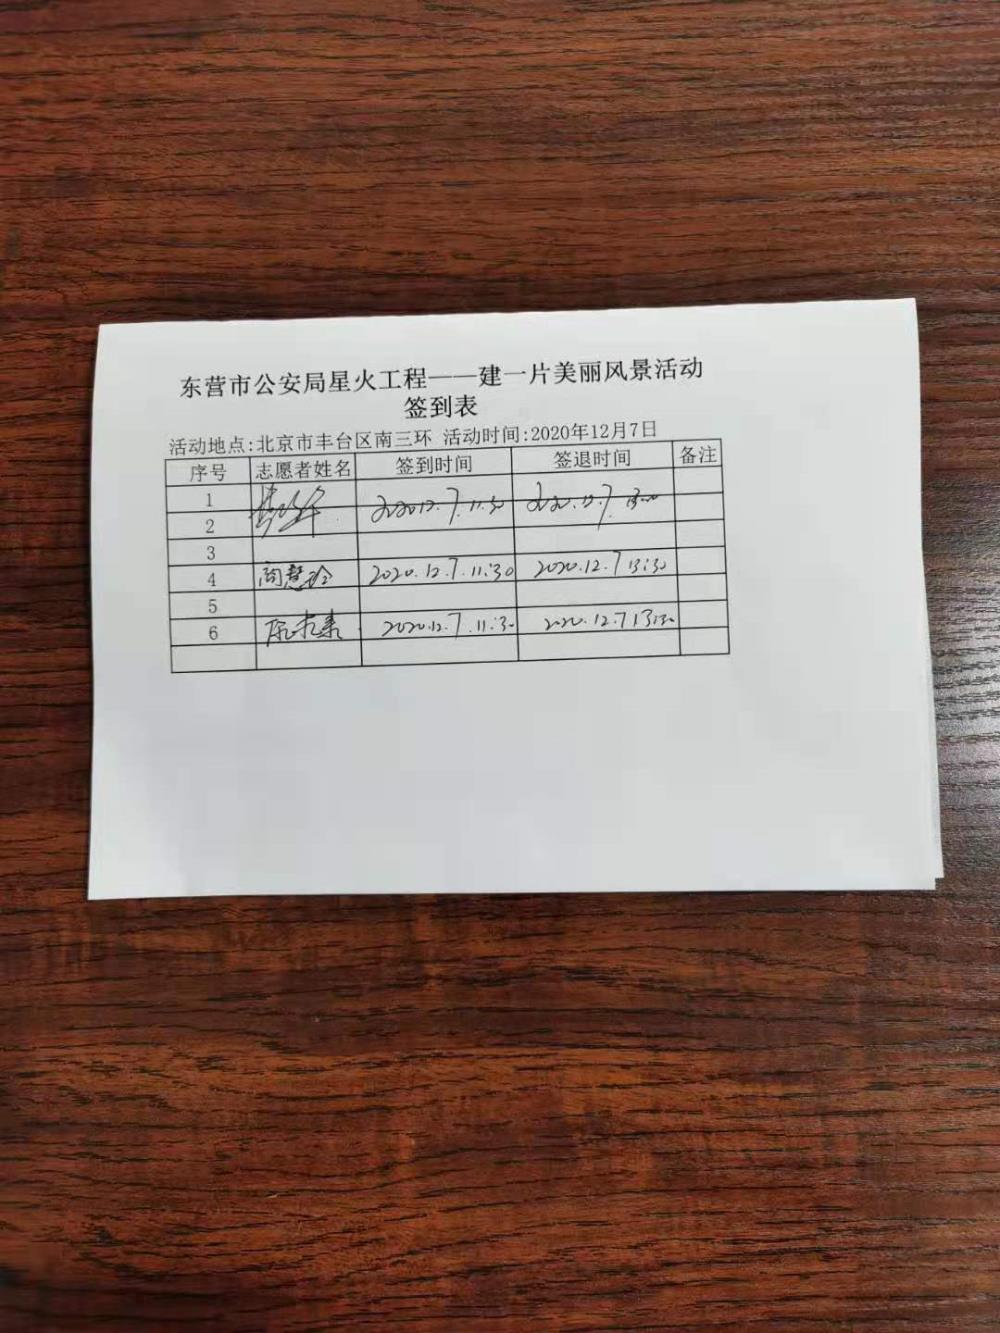 东营市公安局星火工程——建一片美丽风景活动
签到表
活动地点:北京市丰台区南三环 活动时间:2020年12月7日
序号 志愿者姓名 签到时间 签退时间 备注
1
2 2020.12.7.11:30 2020.12.7.13:00
3
4 尚慧玲 2020.12.7.11:30 2020.12.7 13:30
5
6 2020.12.7.11:30 2020.12.7 13:30